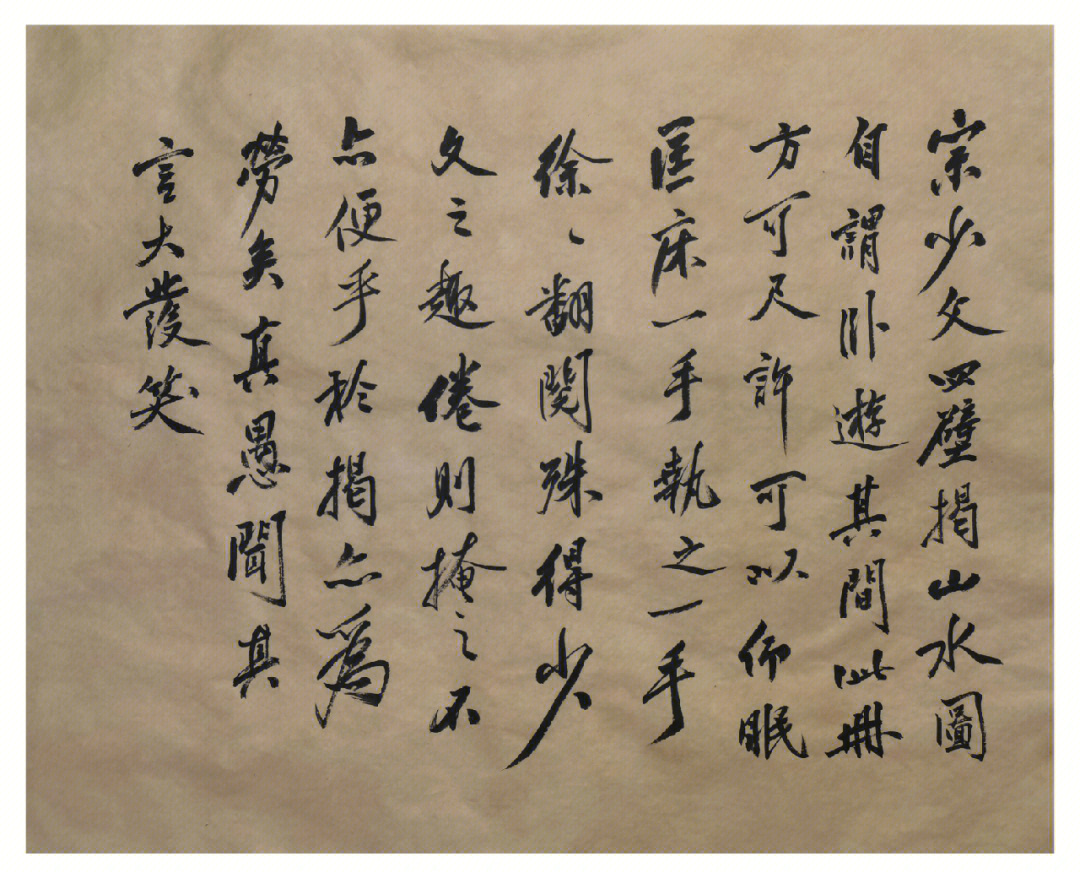 宗少文四壁揭山水圖
自謂卧遊其間此冊
方可尺許可以仰眠
匡床一手執之一手
徐〻翻閱殊得少
文之趣倦則掩之不
亦便乎於揭亦為
勞矣真愚聞其
言大發笑